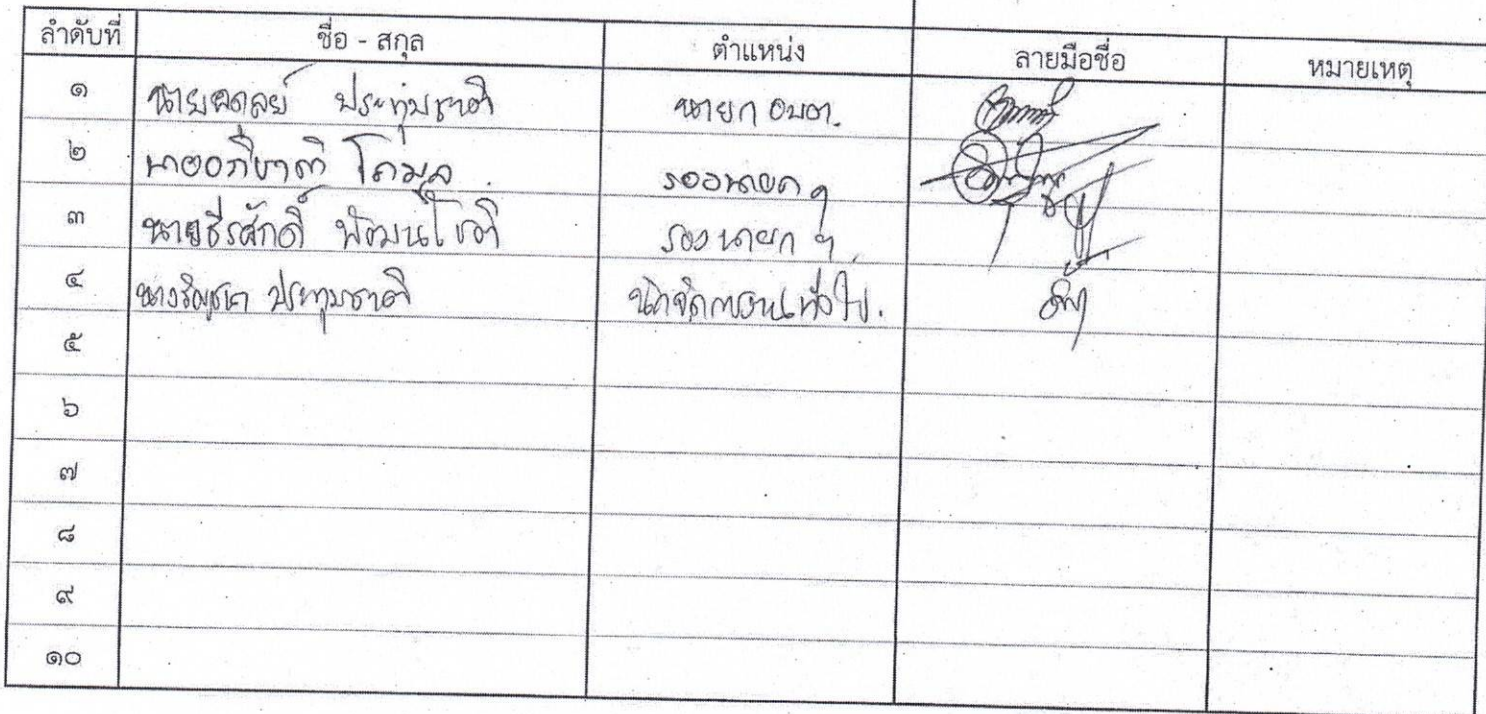 ลำดับที่ ชื่อ - สกุล ตำแหน่ง ลายมือชื่อ หมายเหตุ
๑ นายอดุลย์ ประทุมชาติ นายก อบต.
๒ นายอภิชาติ โถมูล รองนายก ฯ
๓ นายธีรศักดิ์ พัฒนโชติ รองนายก ฯ
๔ ประทุมชาติ นักจัดการงานทั่วไป.
๕
๖
๗
๘
๙
๑๐